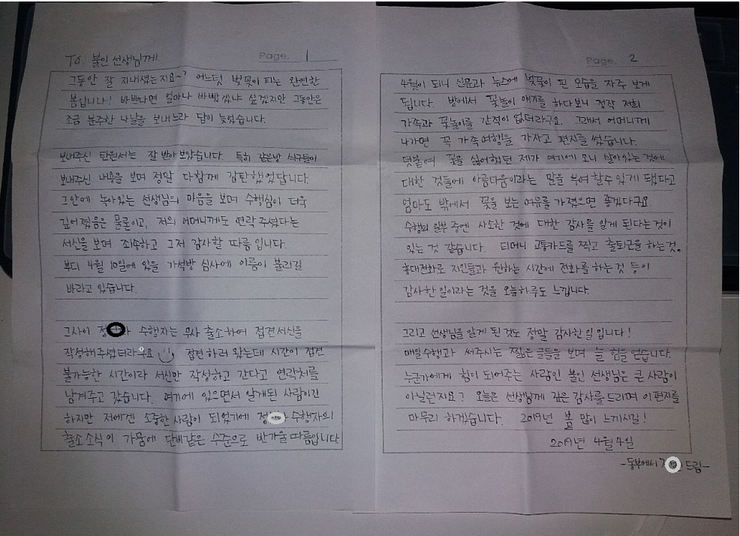 To. 불인 선생님께!
Page. 1
그동안 잘 지내셨는지요~? 어느덧 벚꽃이 피는 완연한
봄입니다! 바쁘다면 얼마나 바쁘겠냐 싶겠지만 그동안은
조금 분주한 나날을 보내느라 답이 늦었습니다.
보내주신 탄원서는 잘 받아 보았습니다. 특히 같은방 식구들이
보내주신 내용을 보며 정말 다함께 감탄했었답니다.
그안에 녹아있는 선생님의 마음을 보며 수행심이 더욱
깊어졌음은 물론이고, 저의 어머니께도 연락 주셨다는
서신을 보며 죄송하고 그저 감사할 따름 입니다.
부디 4월 10일에 있을 가석방 심사에 이름이 불리길
바라고 있습니다.
그사이 정 수행자는 무사 출소하여 접견서신을
작성해주셨더라구요 접견 하러 왔는데 시간이 접견
불가능한 시간이라 서신만 작성하고 간다고 연락처를
남겨주고 갔습니다. 여기에 있으면서 알게된 사람이긴
하지만 저에겐 소중한 사람이 되었기에 정 수행자의
출소소식이 가뭄에 단비같은 수준으로 반가울 따름입니다
Page. 2
4월이 되니 신문과 뉴스에 벚꽃이 핀 모습을 자주 보게
됩니다. 방에서 꽃놀이 얘기를 하다보니 정작 저희
가족과 꽃놀이를 간적이 없더라구요. 그래서 어머니께
나가면 꼭 가족여행을 가자고 편지를 썼습니다.
덧붙여 꽃을 싫어했던 제가 여기에 오니 살아있는 것에
대한 것들에 아름다움이라는 말을 부여할수 있게 됐다고
엄마도 밖에서 꽃을 보는 여유를 가졌으면 좋겠다구요
수행의 일부 주엔 사소한 것에 대한 감사를 알게 된다는 것이
있는 것 같습니다. 티머니 교통카드를 찍고 출퇴근을 하는것.
휴대전화로 지인들과 원하는 시간에 전화를 하는것 등이
감사한 일이라는 것을 오늘하루도 느낍니다.
그리고 선생님을 알게 된 것도 정말 감사한 일 입니다!
매일수행과 써주시는 짧은 글들을 보며 늘 힘을 얻습니다.
누군가에게 힘이 되어주는 사람인 불인 선생님은 큰 사람이
아닐런지요? 오늘은 선생님께 깊은 감사를 드리며 이 편지를
마무리 하겠습니다. 2019년 봄 많이 느끼시길!
2019년 4월 4일
-동부에서 드림-